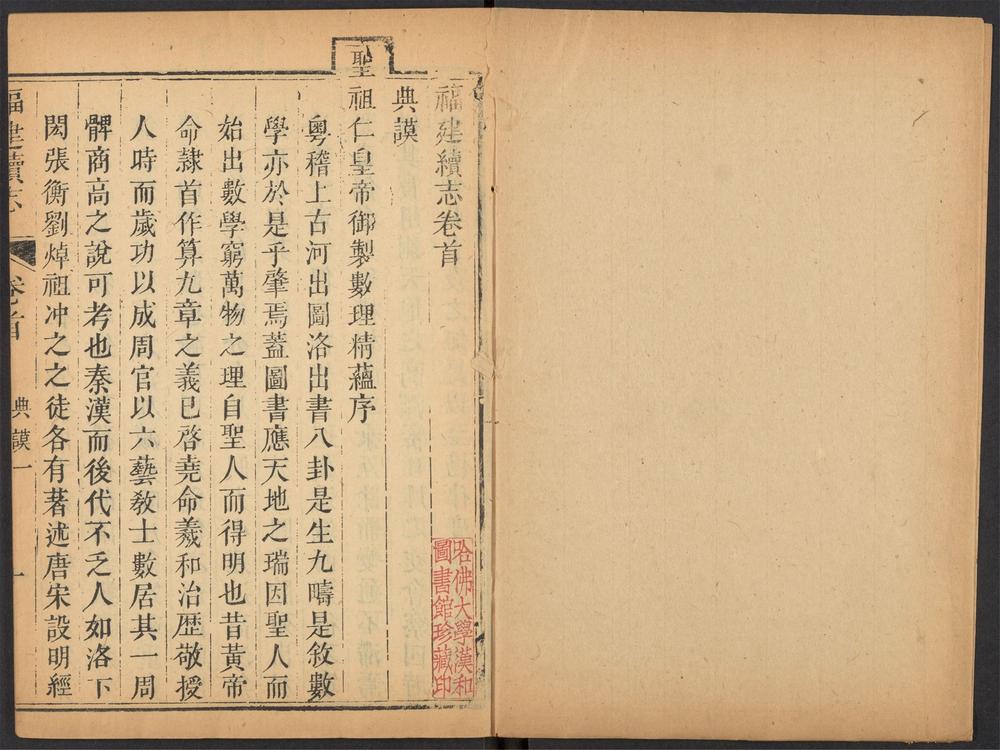 福建續志卷首
典謨
聖祖仁皇帝御製數理精蘊序
粵稽上古河出圖洛出書八卦是生九疇是敘數
學亦於是乎肇焉蓋圖書應天地之瑞因聖人而
始出數學窮萬物之理自聖人而得明也昔黃帝
命隸首作算九章之義已啓堯命羲和治歴敬授
人時而歲功以成周官以六藝敎士數居其一周
髀商高之說可考也秦漢而後代不乏人如洛下
閎張衡劉焯祖冲之之徒各有著述唐宋設明經
福建續志
卷首
典謨一
一
哈佛大學漢和
圖書館珍藏印